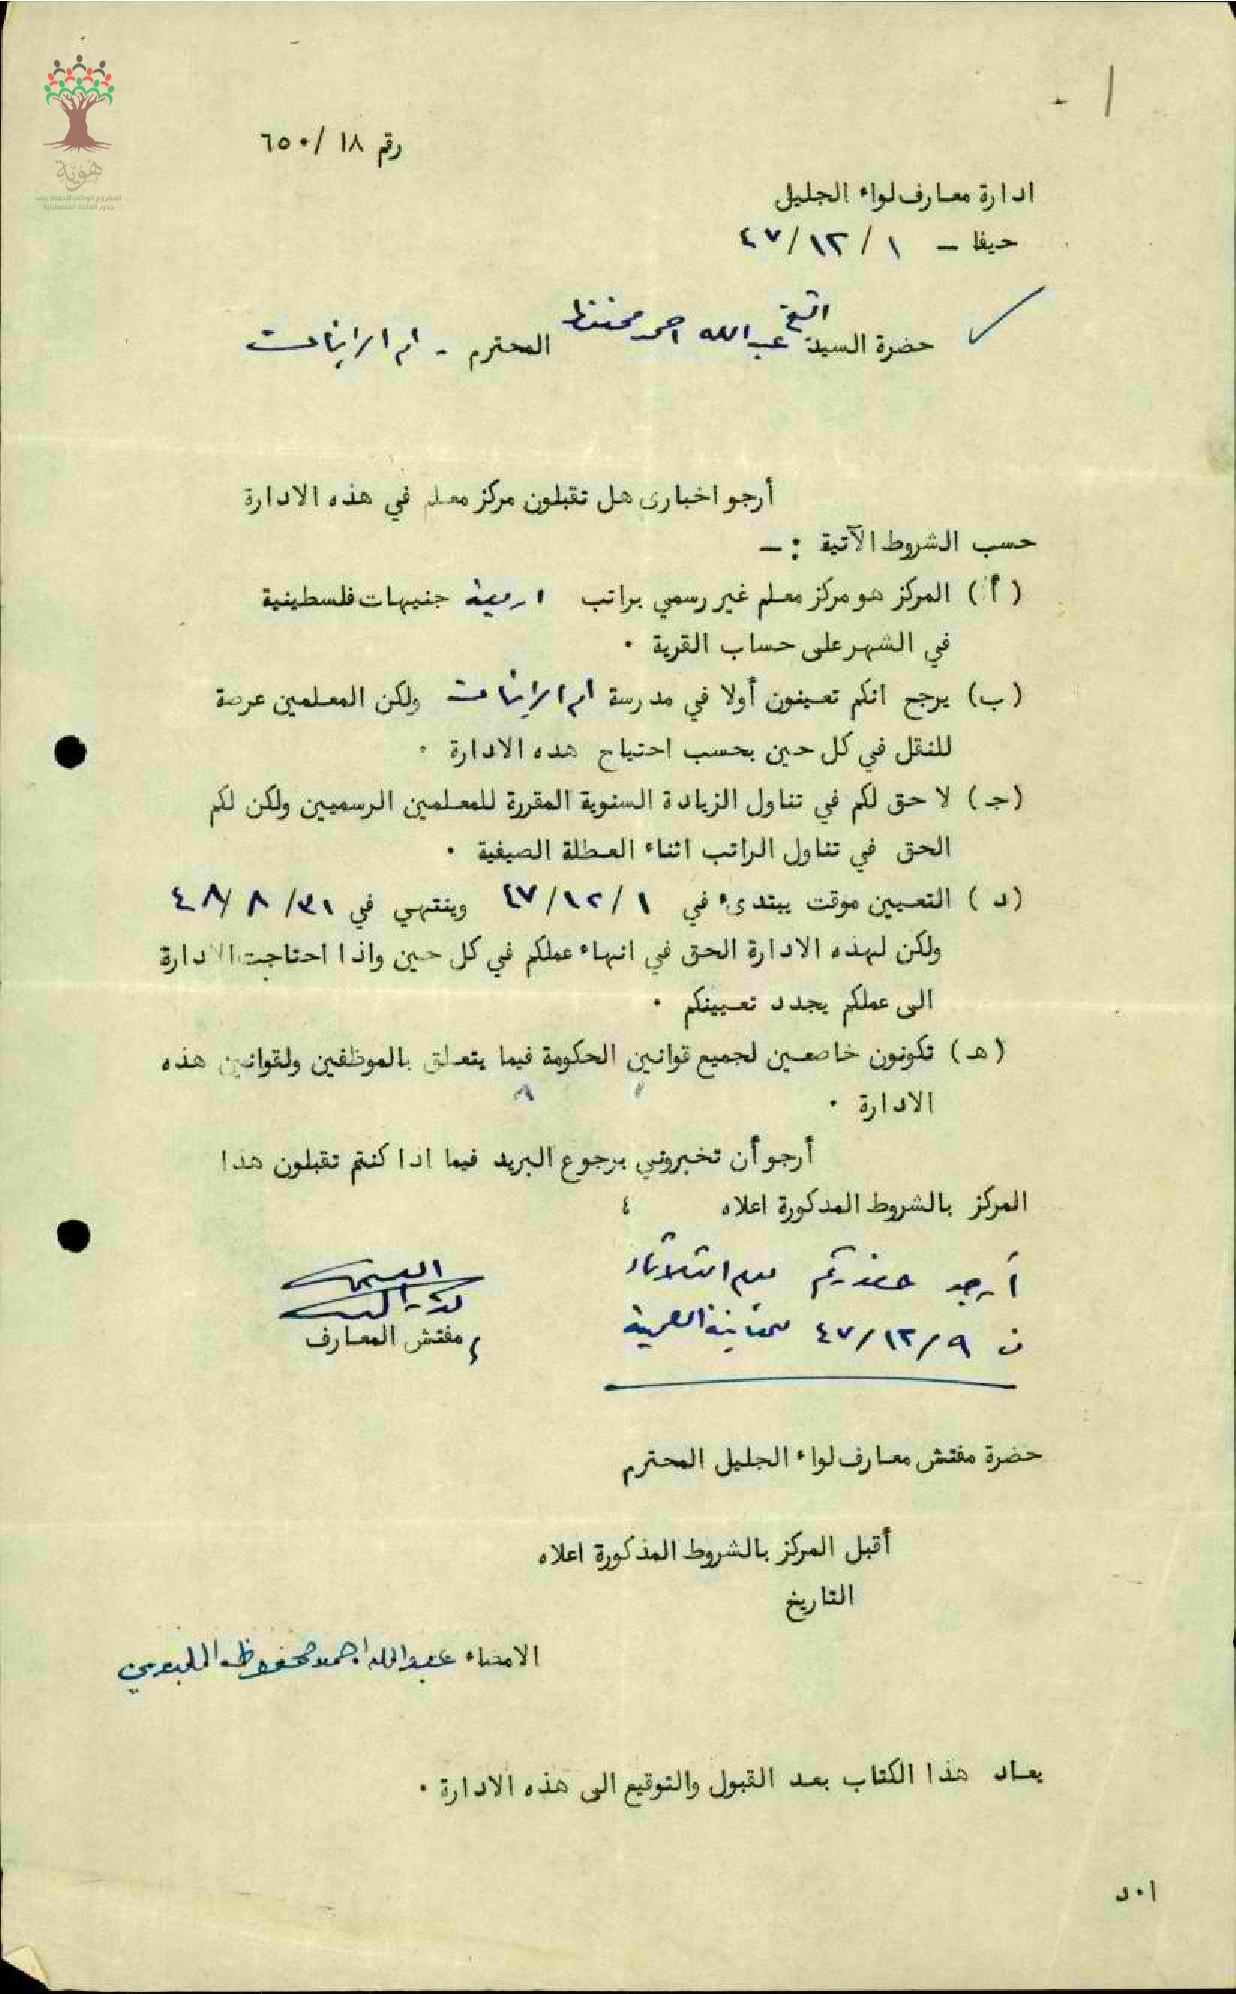 هوية
المشروع الوطني للحفاظ على
جذور العائلة الفلسطينية
رقم ١٨ / ٦٥٠
ادارة معارف لواء الجليل
حيفا – ١ / ١٢ / ٤٧
حضرة السيد الشيخ عبدالله احمد محفوظ المحترم - ام الزينات
أرجو اخباري هل تقبلون مركز معلم في هذه الادارة
حسب الشروط الآتية : –
( أ ) المركز هو مركز معلم غير رسمي براتب اربعة جنيهات فلسطينية
في الشهر على حساب القرية ٠
( ب ) يرجح انكم تعينون أولا في مدرسة ام الزينات ولكن المعلمين عرضة
للنقل في كل حين بحسب احتياج هذه الادارة ٠
( جـ ) لا حق لكم في تناول الزيادة السنوية المقررة للمعلمين الرسميين ولكن لكم
الحق في تناول الراتب اثناء العطلة الصيفية ٠
( د ) التعيين موقت يبتدىء في ١ / ١٢ / ٤٧ وينتهي في ٣١ / ٨ / ٤٨
ولكن لهذه الادارة الحق في انهاء عملكم في كل حين واذا احتاجت الادارة
الى عملكم يجدد تعيينكم ٠
( هـ ) تكونون خاضعين لجميع قوانين الحكومة فيما يتعلق بالموظفين ولقوانين هذه
الادارة ٠
أرجو أن تخبروني برجوع البريد فيما اذا كنتم تقبلون هذا
المركز بالشروط المذكورة اعلاه ؛
أرجو حضرتكم يوم الثلاثاء
في ٩ / ١٢ / ٤٧
مفتش المعارف
حضرة مفتش معارف لواء الجليل المحترم
أقبل المركز بالشروط المذكورة اعلاه
التاريخ
الامضاء عبدالله احمد محفوظ
يعاد هذا الكتاب بعد القبول والتوقيع الى هذه الادارة ٠
ا ٠ د